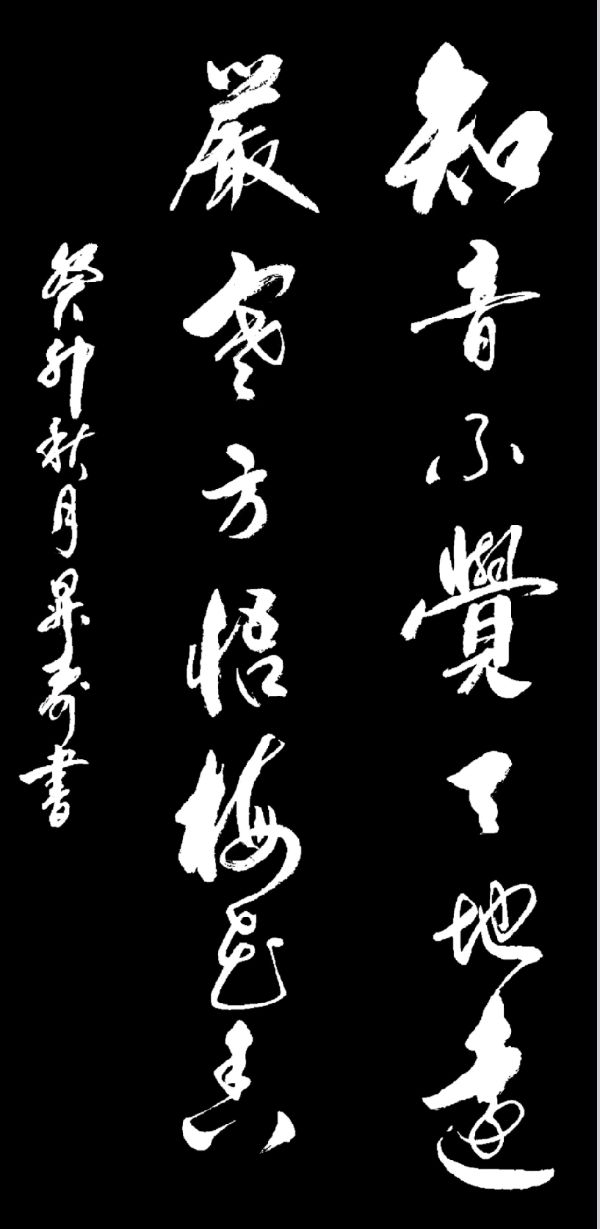 知音不覺天地遠
嚴寒方悟梅花香
癸卯秋月昇壽書